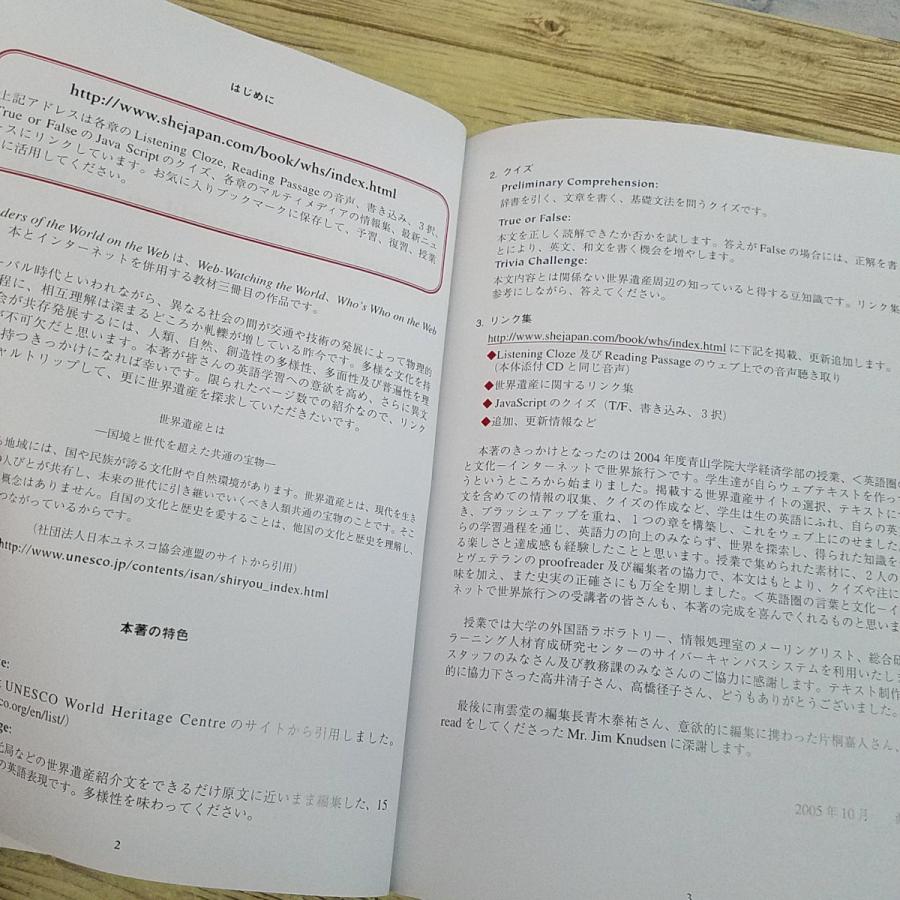 はじめに
http://www.shejapan.com/book/whs/index.html
上記アドレスは各章のListening Cloze, Reading Passageの音声、書き込み、3択、
True or FalseのJava Scriptのクイズ、各章のマルティメディアの情報集、最新ニュ
ースにリンクしています。お気に入りブックマークに保存して、予習、復習、授業
に活用してください。
ders of the World on the Web は、Web-Watching the World、Who's Who on the Web
本とインターネットを併用する教材三冊目の作品です。
ーバル時代といわれながら、異なる社会の間が交通や技術の発展によって物理的
程に、相互理解は深まるどころか軋轢が増している昨今です。多様な文化を持
会が共存発展するには、人類、自然、創造性の多様性、多面性及び普遍性を理
が不可欠だと思います。本著が皆さんの英語学習への意欲を高め、さらに異文
持つきっかけになれば幸いです。限られたページ数での紹介なので、リンク
ャルトリップして、更に世界遺産を探求していただきたいです。
世界遺産とは
―国境と世代を超えた共通の宝物―
地域には、国や民族が誇る文化財や自然環境があります。世界遺産とは、現代を生き
人びとが共有し、未来の世代に引き継いでいくべき人類共通の宝物のことです。そこ
概念はありません。自国の文化と歴史を愛することは、他国の文化と歴史を理解し、
つながっているからです。
(社団法人日本ユネスコ協会連盟のサイトから引用)
http://www.unesco.jp/contents/isan/shiryou_index.html
本著の特色
e:
UNESCO World Heritage Centreのサイトから引用しました。
co.org/en/list/)
ge:
光局などの世界遺産紹介文をできるだけ原文に近いまま編集した、15
の英語表現です。多様性を味わってください。
2
2. クイズ
Preliminary Comprehension:
辞書を引く、文章を書く、基礎文法を問うクイズです。
True or False:
本文を正しく読解できたか否かを試します。答えがFalseの場合には、正解を書
とにより、英文、和文を書く機会を増やします。
Trivia Challenge:
本文内容とは関係ない世界遺産周辺の知っていると得する豆知識です。リンク集
参考にしながら、答えてください。
3. リンク集
http://www.shejapan.com/book/whs/index.html に下記を掲載、更新追加します。
◆Listening Cloze 及び Reading Passage のウェブ上での音声聴き取り
(本体添付CDと同じ音声)
◆世界遺産に関するリンク集
◆JavaScriptのクイズ(T/F、書き込み、3択)
◆追加、更新情報など
本著のきっかけとなったのは2004年度青山学院大学経済学部の授業、<英語圏の
と文化−インターネットで世界旅行>です。学生達が自らウェブテキストを作っ
うというところから始まりました。掲載する世界遺産サイトの選択、テキストに
文を含めての情報の収集、クイズの作成など、学生は生の英語にふれ、自らの英
き、ブラッシュアップを重ね、1つの章を構築し、これをウェブ上にのせました。
らの学習過程を通じ、英語力の向上のみならず、世界を探索し、得られた知識を
る楽しさと達成感も経験したことと思います。授業で集められた素材に、2人の
とヴェテランのproofreader 及び編集者の協力で、本文はもとより、クイズや注に
味を加え、また史実の正確さにも万全を期しました。<英語圏の言葉と文化−イ
ネットで世界旅行>の受講者の皆さんも、本著の完成を喜んでくれるものと思いま
授業では大学の外国語ラボラトリー、情報処理室のメーリングリスト、総合研
ラーニング人材育成研究センターのサイバーキャンパスシステムを利用いたしま
スタッフのみなさん及び教務課のみなさんのご協力に感謝します。テキスト制作
的に協力下さった高井清子さん、高橋径子さん、どうもありがとうございました。
最後に南雲堂の編集長青木泰祐さん、意欲的に編集に携わった片桐嘉人さん、
readをしてくださったMr. Jim Knudsenに深謝します。
2005年10月
3